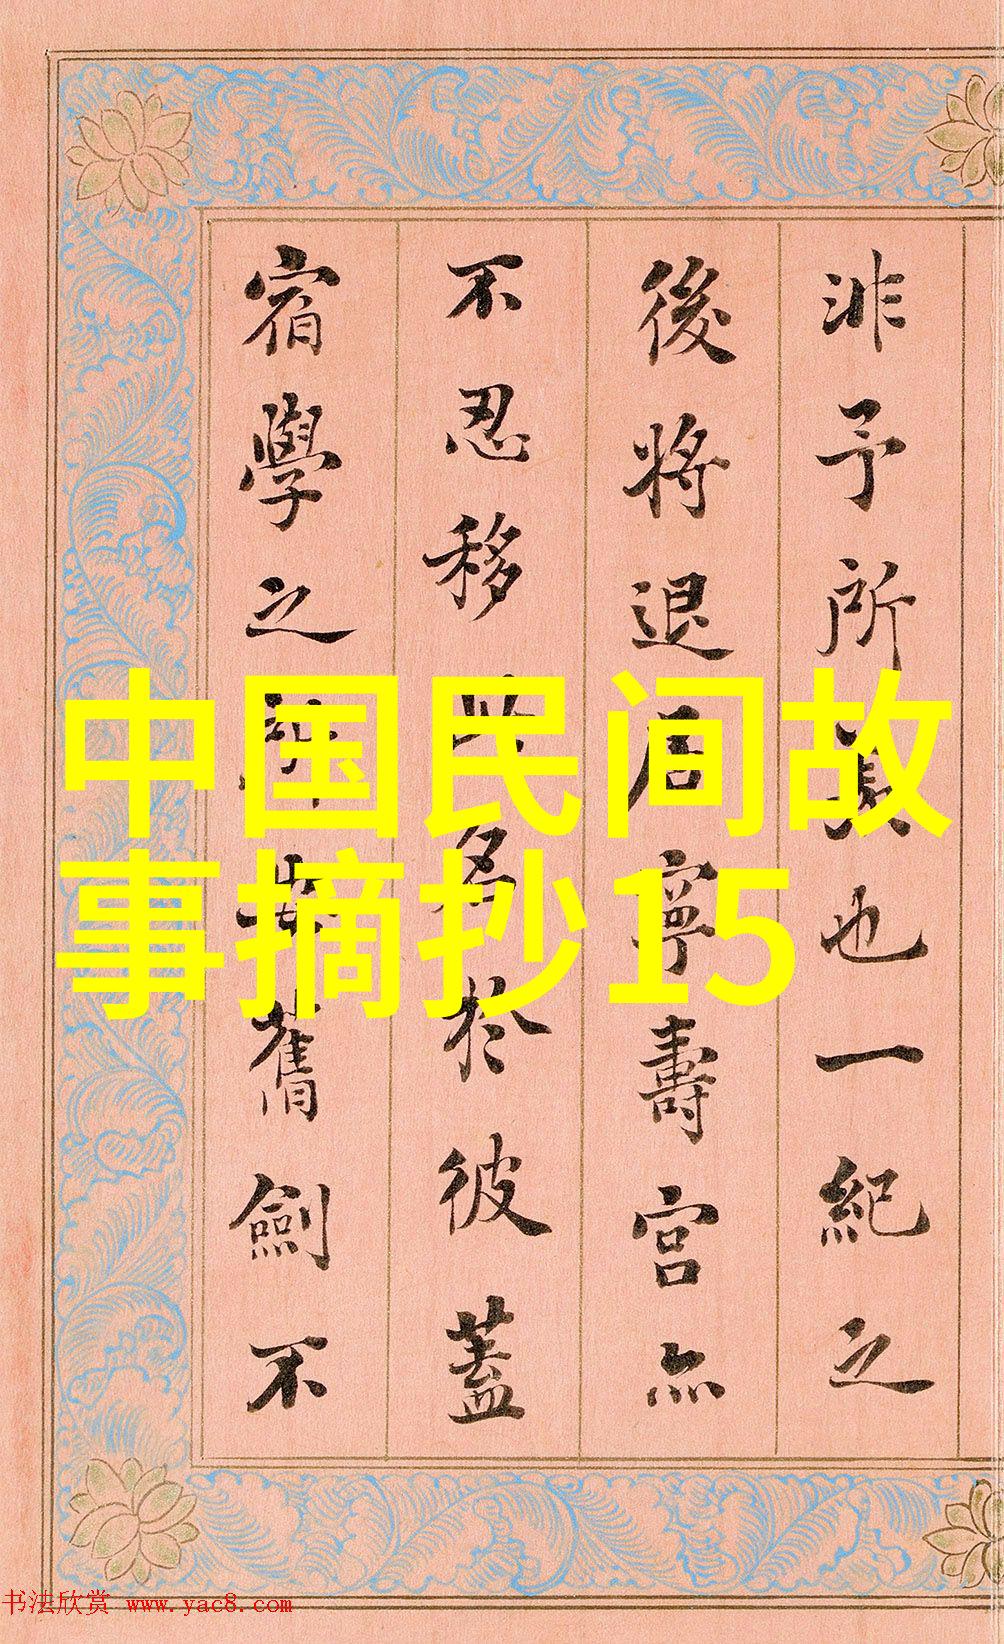 非予所
也一紀之
後將退居寧壽宮亦
不忍移
名於彼蓋
宿學之
舊劍不
中国民间故
事摘抄15
书法欣赏 www.yac8.com